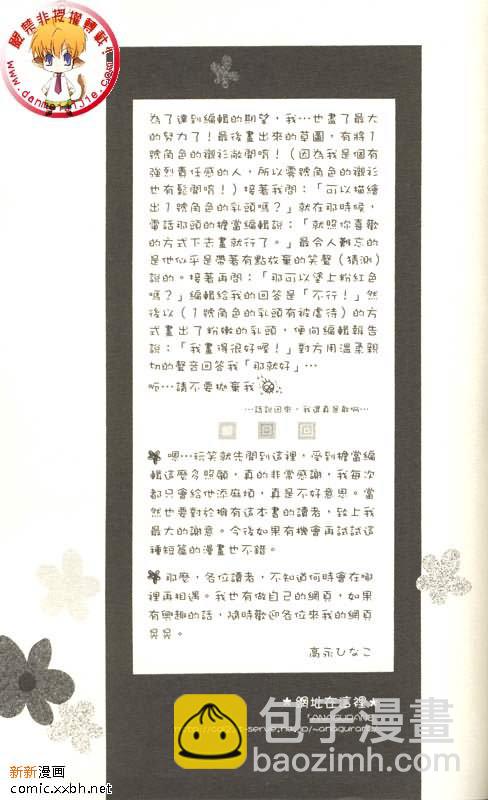 嚴禁非授權轉載!
www.danmeiwujie.com
為了達到編輯的期望，我…也畫了最大
的努力了！最後畫出來的草圖，有將1
號角色的襯衫敞開唷！（因為我是個有
強烈責任感的人，所以零號角色的襯衫
也有鬆開唷！）接著我問：「可以描繪
出1號角色的乳頭嗎？」就在那時候，
電話那頭的擔當編輯說：「就照你喜歡
的方式下去畫就行了。」最令人難忘的
是他似乎是帶著有點放棄的笑聲（猜測）
說的。接著再問：「那可以塗上粉紅色
嗎？」編輯給我的回答是「不行！」然
後以（1號角色的乳頭有被虐待）的方
式畫出了粉嫩的乳頭，便向編輯報告
說：「我畫得很好喔！」對方用溫柔親
切的聲音回答我「那就好」…
呃…請不要拋棄我
…話說回來，我還真是敢啊…
嗯…玩笑就先開到這裡，受到擔當編
輯這麼多照顧，真的非常感謝，我每次
都只會給他添麻煩，真是不好意思。當
然也要對於擁有這本書的讀者，致上我
最大的謝意。今後如果有機會再試試這
種短篇的漫畫也不錯。
那麼，各位讀者，不知道何時會在哪
裡再相遇。我也有做自己的網頁，如果
有興趣的話，隨時歡迎各位來我的網頁
晃晃。
高永ひなこ
★網址在這裡★
包子漫畫
baozimh.com
新新漫画
comic.xxbh.net